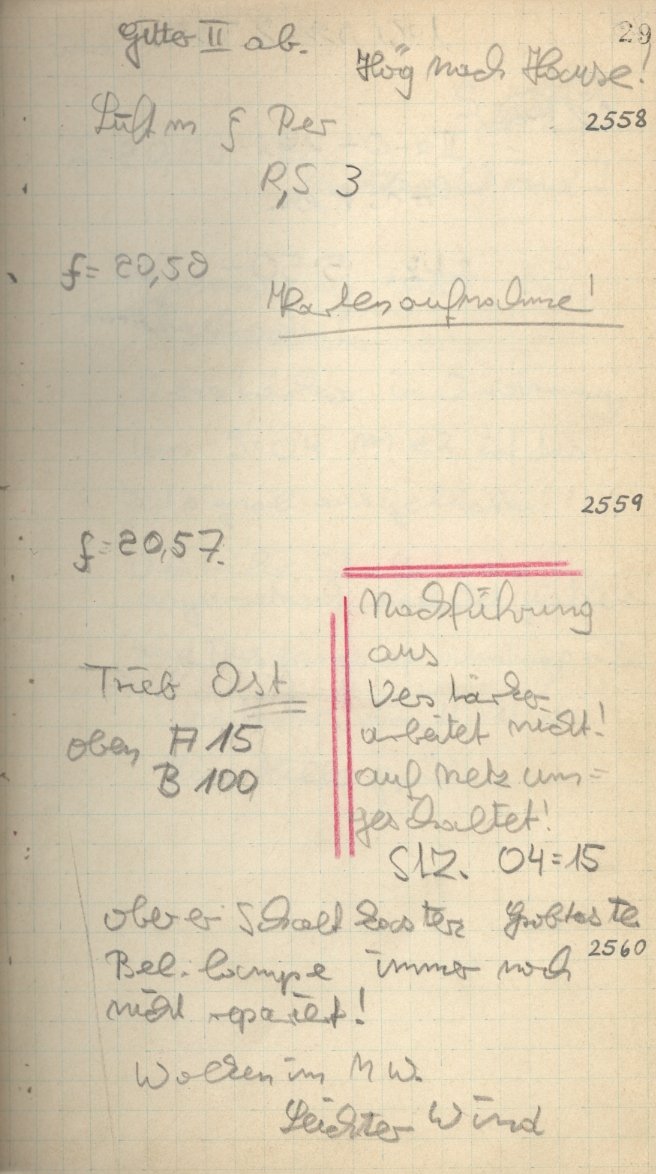 29
Gitter II ab.
Hög nach Hause!
2558
Luft m ξ Per
R,S 3
f= 20,58
Kartenaufnahme!
2559
f=20,57.
Nachführung
aus
Verstärker
arbeitet nicht!
auf Netz um=
geschaltet!
Trieb Ost
oben A 15
B 100
StZ. 04=15
oberer Schaltkasten Grobtaste
2560
Bel. lampe immer noch
nicht repariert!
Wolken im NW.
Leichter Wind